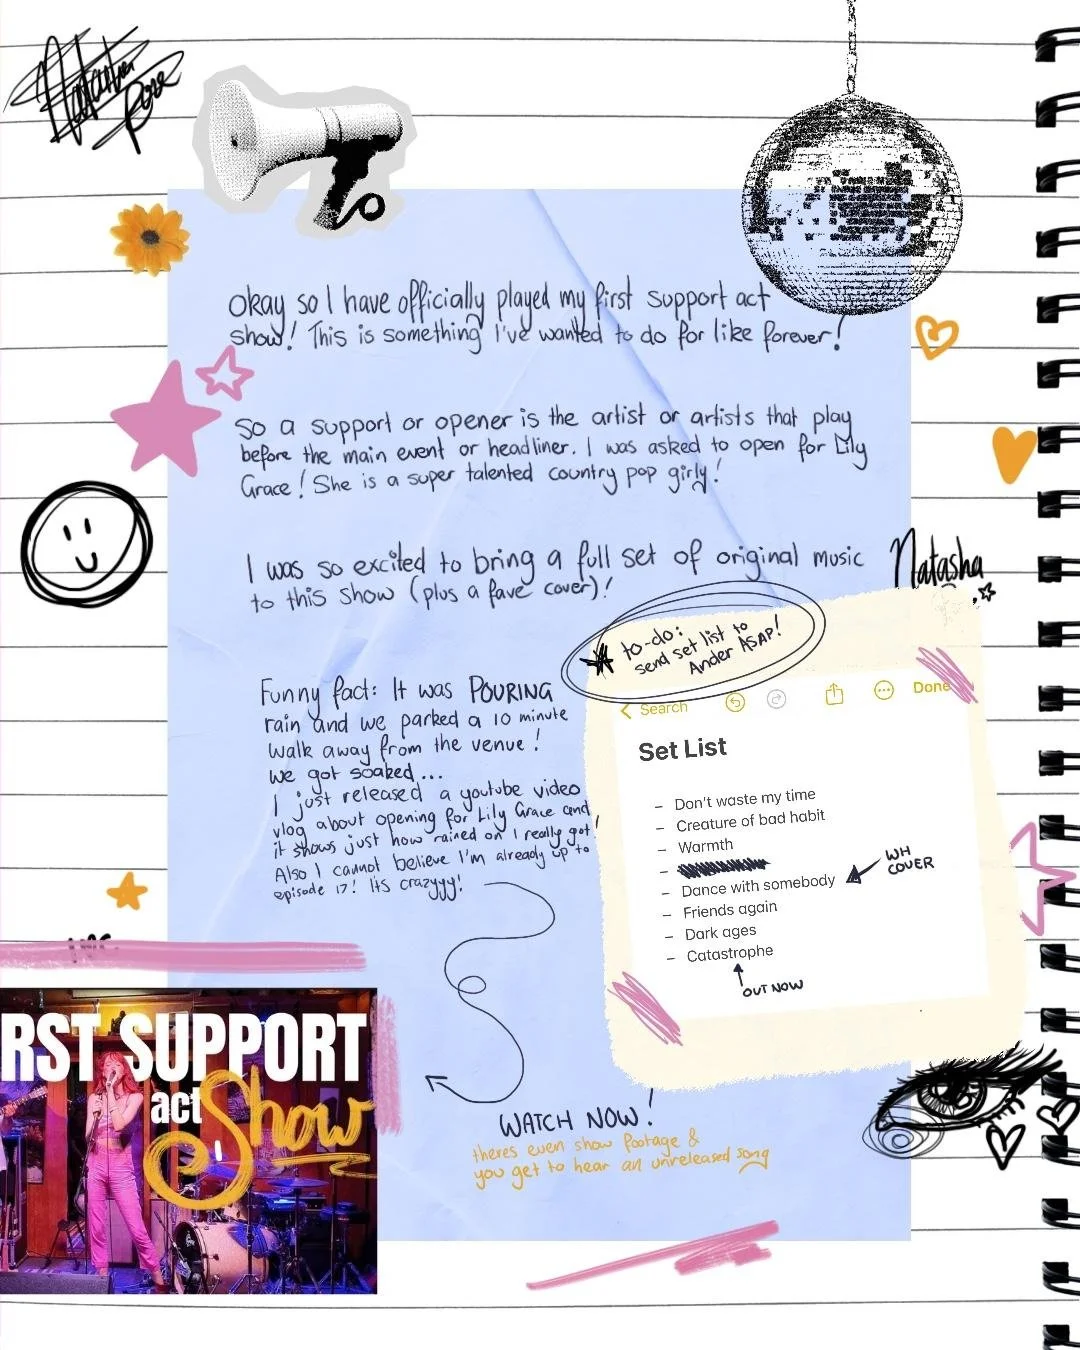 Natasha
Rose
okay so I have officially played my first support act
show! This is something I've wanted to do for like forever!
So a support or opener is the artist or artists that play
before the main event or headliner. I was asked to open for Lily
Grace! She is a super talented country pop girly!
I was so excited to bring a full set of original music
to this show (plus a fave cover)!
Natasha
to-do:
send set list to
Ander ASAP!
Funny fact: It was POURING
rain and we parked a 10 minute
walk away from the venue!
we got soaked...
I just released a youtube video
vlog about opening for Lily Grace and
it shows just how rained on I really got!
Also I cannot believe I'm already up to
episode 17! Its crazyyy!
Search
Done
Set List
– Don't waste my time
– Creature of bad habit
– Warmth
–
– Dance with somebody
WH
COVER
– Friends again
– Dark ages
– Catastrophe
OUT NOW
RST SUPPORT
act Show
WATCH NOW!
theres even show footage &
you get to hear an unreleased song